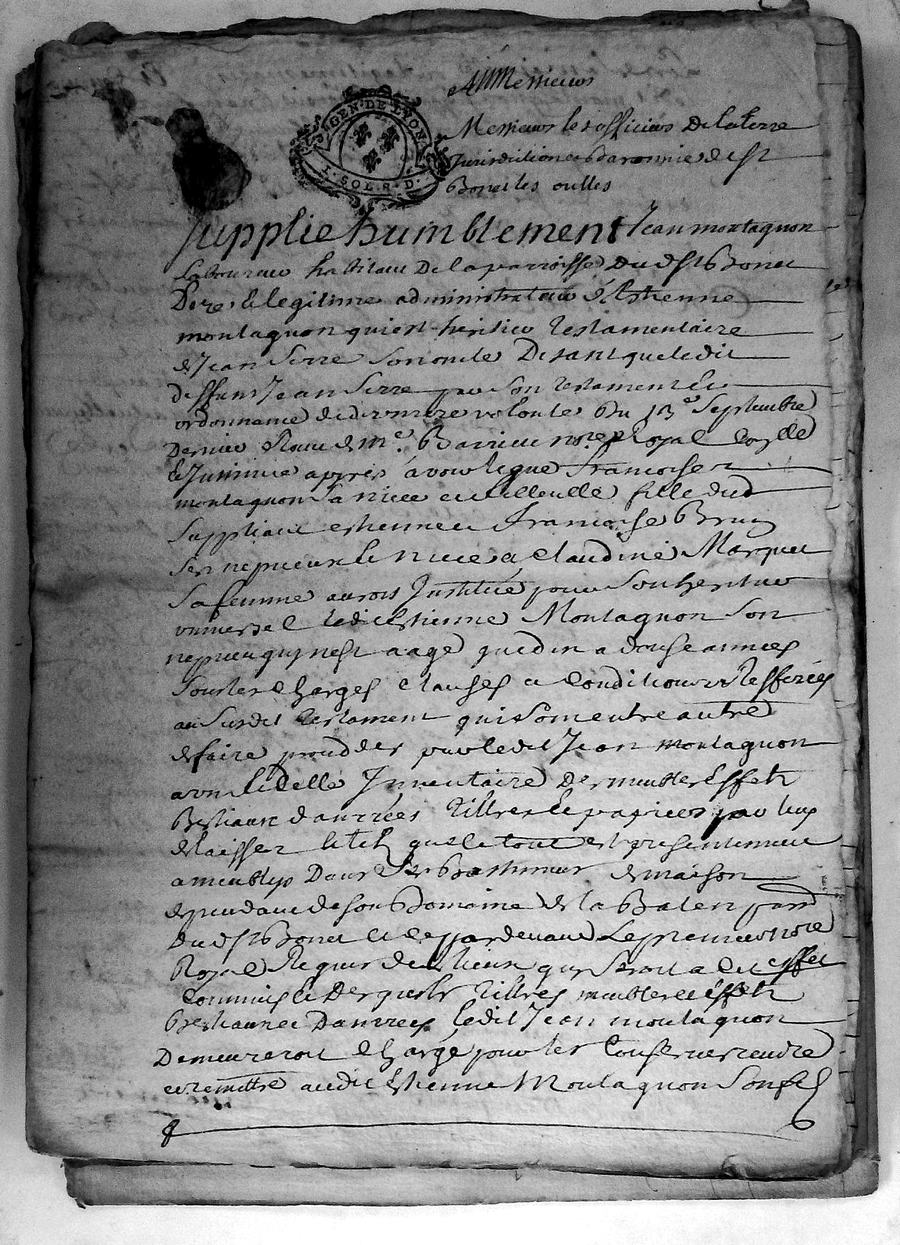 GEN. DE LYON
SOL. R. D.
Messieurs
Messieurs les officiers De la terre
Jurisdiction et Baronnie de st
Bonet les oulles
Supplie humblement Jean montagnon
laboureur habitant De la parroisse Du d st Bonet
Pere & legitime administrateur d'Estienne
montagnon qui est heritier testamentaire
de Jean Serre son oncle Disant que ledit
deffunt Jean Serre par son testament &
ordonnance de derniere volonté Du 13e Septembre
Dernier Me Barrieu nore Royal
apprés avoir legué a francoise
montagnon sa niece et filleulle fille dud
suppliant estienne et francoise Brun
ses nepveux & niece & Claudine Marquet
sa femme auroit Institué pour son heritier
universel ledit Estienne Montagnon son
nepveu quy nest aagé que d'un a douse années
sous les Charges Clauses et Conditions Refferées
au susdit testament qui sont entre autre
de faire proceder par ledit Jean montagnon
a un fidelle Inventaire Des meubles Effets
Bestiaux danrées tiltres & papiers par luy
delaissez & tels que le tout est presentement
a meublys Dans les Bastiments de maison
dependant de son Domaine de la parrd
Du d st Bonet & ce pardevant Le premier nore
Royal Requis des lieux quy seroit a cet effet
Commis & Desquels tiltres meubles & effets
Bestiaux et Danrées ledit Jean montagnon
Demeureroit Chargé pour les Conserver rendre
et remettre audit Estienne Montagnon son fils